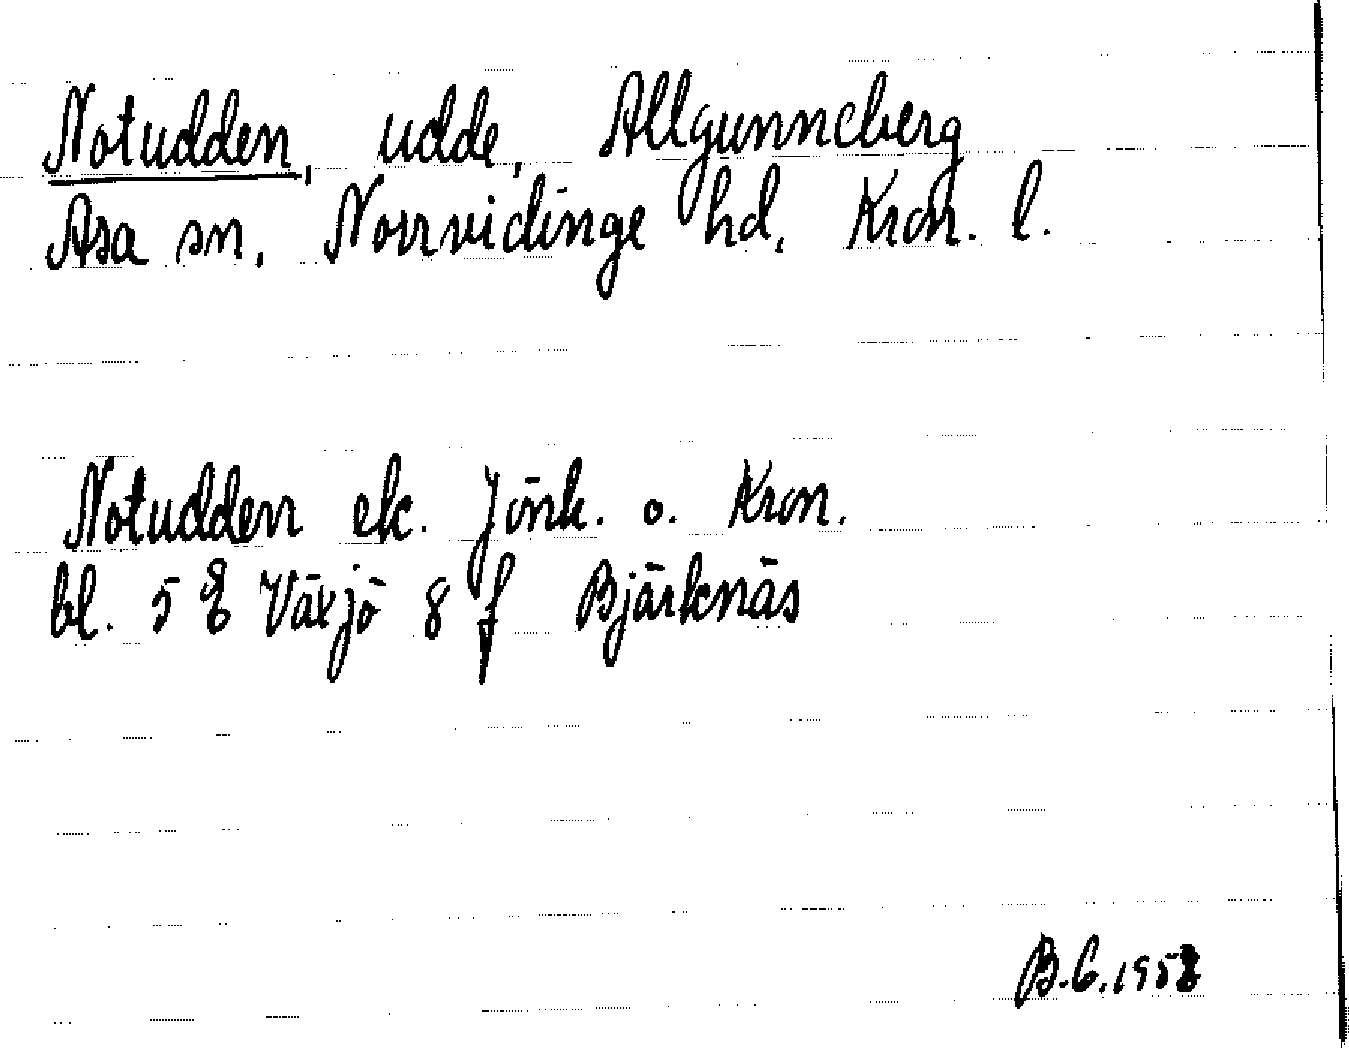 Notudden, udde, Allgunneberg
Asa sn, Norrvidinge hd, Kron. l.
Notudden ek. Jönk. o. Kron.
bl. 5 E Växjö 8 f Bjärknäs
B.G.